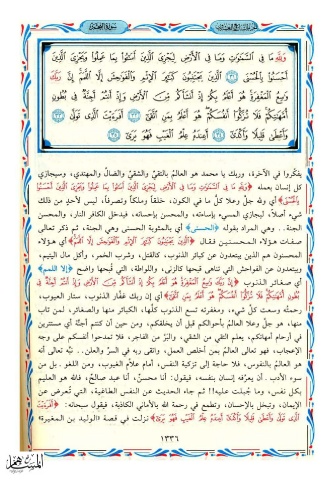 سورة النجم
وَلِلَّهِ مَا فِي السَّمَٰوَٰتِ وَمَا فِي الْأَرْضِ لِيَجْزِيَ الَّذِينَ أَسَٰٓـُٔوا بِمَا عَمِلُوا وَيَجْزِيَ الَّذِينَ
أَحْسَنُوا بِالْحُسْنَى ﴿٣١﴾ الَّذِينَ يَجْتَنِبُونَ كَبَٰٓئِرَ الْإِثْمِ وَالْفَوَٰحِشَ إِلَّا اللَّمَمَ إِنَّ رَبَّكَ
وَٰسِعُ الْمَغْفِرَةِ هُوَ أَعْلَمُ بِكُمْ إِذْ أَنشَأَكُم مِّنَ الْأَرْضِ وَإِذْ أَنتُمْ أَجِنَّةٌ فِي بُطُونِ
أُمَّهَٰتِكُمْ فَلَا تُزَكُّوا أَنفُسَكُمْ هُوَ أَعْلَمُ بِمَنِ اتَّقَىٰٓ ﴿٣٢﴾ أَفَرَءَيْتَ الَّذِي تَوَلَّىٰ ﴿٣٣﴾
وَأَعْطَىٰ قَلِيلًا وَأَكْدَىٰٓ ﴿٣٤﴾ أَعِندَهُ عِلْمُ الْغَيْبِ فَهُوَ يَرَىٰٓ ﴿٣٥﴾
يفكروا في الآخرة، وربك يا محمد هو العالمُ بالتقيِّ والشقيِّ والضالِّ والمهتدي، وسيجازي
كل إنسان بعمله ﴿وَلِلَّهِ مَا فِي السَّمَٰوَٰتِ وَمَا فِي الْأَرْضِ لِيَجْزِيَ الَّذِينَ أَسَٰٓـُٔوا بِمَا عَمِلُوا وَيَجْزِيَ الَّذِينَ أَحْسَنُوا
بِالْحُسْنَى﴾ أي والله جلَّ وعلا كلُّ ما في الكون، خلقاً وملكاً وتصرفاً، ليس لأحدٍ من ذلك
شيء أصلاً، ليجازي المسيء بإساءته، والمحسن بإحسانه، فيدخل الكافر النار، والمحسن
الجنة.. وهي المراد بقوله ﴿الحسنى﴾ أي بالمثوبة الحسنى وهي الجنة، ثم ذكر تعالى
صفات هؤلاء المحسنين فقال ﴿الَّذِينَ يَجْتَنِبُونَ كَبَٰٓئِرَ الْإِثْمِ وَالْفَوَٰحِشَ إِلَّا اللَّمَمَ﴾ أي هؤلاء
المحسنون هم الذين يبتعدون عن كبائر الذنوب، كالقتل، وشرب الخمر، وأكل مال اليتيم،
ويبتعدون عن الفواحش التي تناهى قبحها كالزنى، واللواطة، التي قُبحها واضح ﴿إلا اللمم﴾
أي صغائر الذنوب ﴿إِنَّ رَبَّكَ وَٰسِعُ الْمَغْفِرَةِ هُوَ أَعْلَمُ بِكُمْ إِذْ أَنشَأَكُم مِّنَ الْأَرْضِ وَإِذْ أَنتُمْ أَجِنَّةٌ فِي
بُطُونِ أُمَّهَٰتِكُمْ فَلَا تُزَكُّوا أَنفُسَكُمْ هُوَ أَعْلَمُ بِمَنِ اتَّقَىٰٓ﴾ أي إن ربك غفَّار الذنوب، ستار العيوب،
رحمتُه وسعت كلَّ شيء، ومغفرته تسع الذنوب كلَّها، الكبائر منها والصغائر، لمن تاب
منها، هو جلَّ وعلا العالمُ بأحوالكم قبل أن يخلقكم، ومن حين أن كنتم أجنَّة أي مستترين
في أرحام أمهاتكم، يعلم التقي من الشقي، والبَرَّ من الفاجر، فلا تمدحوا أنفسكم على وجه
الإعجاب، فهو تعالى العالمُ بمن أخلص العمل، واتقى ربه في السرِّ والعلن.. نبَّه تعالى أنه
هو العالمُ بالنفوس، فلا حاجة إلى تزكية النفس، أمام علاَّم الغيوب، ومن اللغو.. بل من
سوء الأدب.. أن يعرِّفه إنسان بنفسه، فيقول: أنا محسنٌ، أنا عبد صالحٌ، فالله هو العليم
بكل نفس، وما جُبلت عليه!! ثم جاء الحديث عن النفس الطاغية، التي تُعرض عن
الإيمان، وتبخل بالإحسان، وتطمع في رحمة الله بالأماني الكاذبة، فيقول سبحانه: ﴿أَفَرَءَيْتَ
الَّذِي تَوَلَّىٰ وَأَعْطَىٰ قَلِيلًا وَأَكْدَىٰٓ أَعِندَهُ عِلْمُ الْغَيْبِ فَهُوَ يَرَىٰٓ﴾ نزلت في قصة «الوليد بن المغيرة»
١٣٣٦